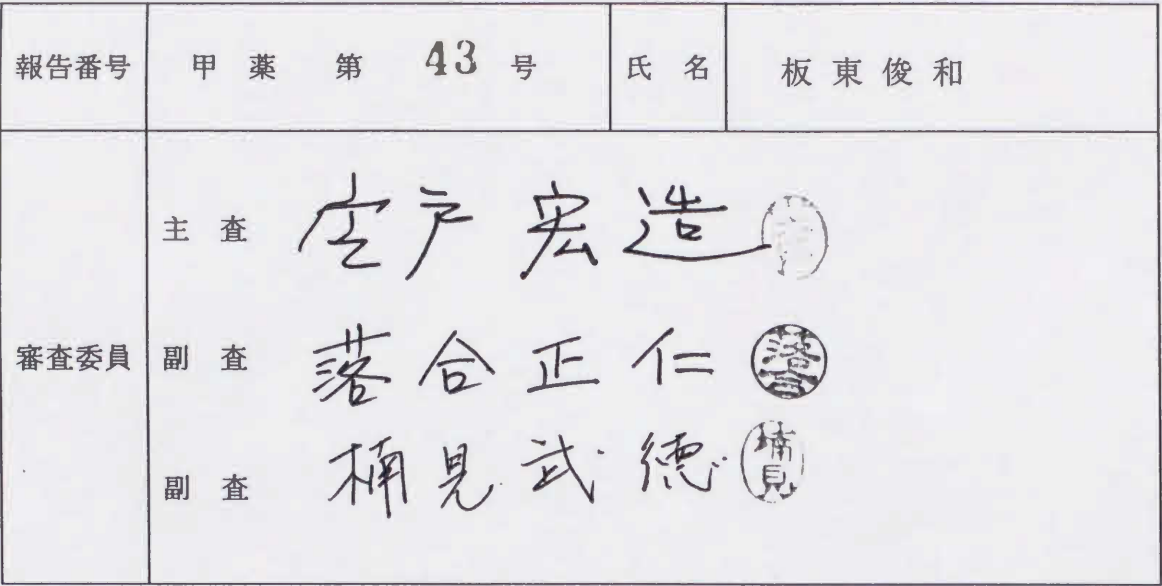 報告番号 甲 薬 第 43 号 氏 名 板 東 俊 和
主 査 宍戸 宏造
審査委員 副 査 落合正仁 落合
副 査 楠見武徳 楠見